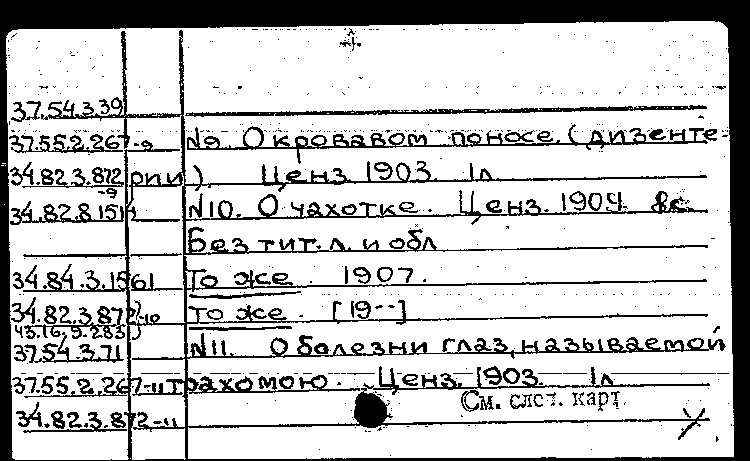 37.54.3.39
37.55.2.267-9 №9. О кровавом поносе. (дизенте-
34.82.3.872-9 рии). Ценз. 1903. 1л
34.82.8.1514 №10. О чахотке. Ценз. 1904. 8с.
Без тит. л. и обл
34.84.3.1561 То же. 1907.
34.82.3.872-10 То же. [19--]
43.16.9.283
37.54.3.71 №11. О болезни глаз, называемой
37.55.2.267-11 трахомою. Ценз. 1903. 1л
См. след. карт.
34.82.3.872-11